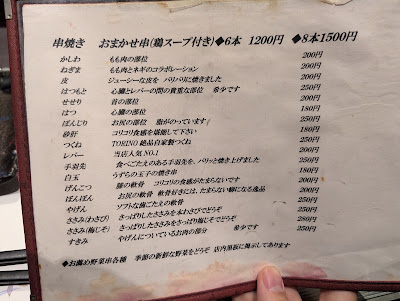 串焼き おまかせ串(鶏スープ付き)◆6本 1200円 ◆8本1500円
かしわ もも肉の部位 200円
ねぎま もも肉とネギのコラボレーション 200円
皮 ジューシーな皮を パリパリに焼きました 200円
はつもと 心臓とレバーの間の貴重な部位 希少です 250円
せせり 首の部位 200円
はつ 心臓の部位 180円
ぼんじり お尻の部位 脂がのっています 250円
砂肝 コリコリ食感を堪能して下さい 180円
つくね TORINO 絶品自家製つくね 250円
レバー 当店人気 NO.1 200円
手羽先 食べごたえのある手羽先を、パリッと焼き上げました 250円
白玉 うずらの玉子の焼き串 180円
げんこつ 膝の軟骨 コリコリの食感がたまらないです 200円
ぽんぽん お尻の軟骨 軟骨付きには、たまらない癖になる逸品 200円
やげん ソフトな歯ごたえの軟骨 250円
ささみ(わさび) さっぱりしたささみを本わさびでどうぞ 250円
ささみ(梅じそ) さっぱりしたささみをさっぱり梅じそでどうぞ 280円
すきみ やげんについているお肉の部分 希少です 250円
◆お薦め野菜串各種 季節の新鮮な野菜をどうぞ 店内黒板に掲示してあります